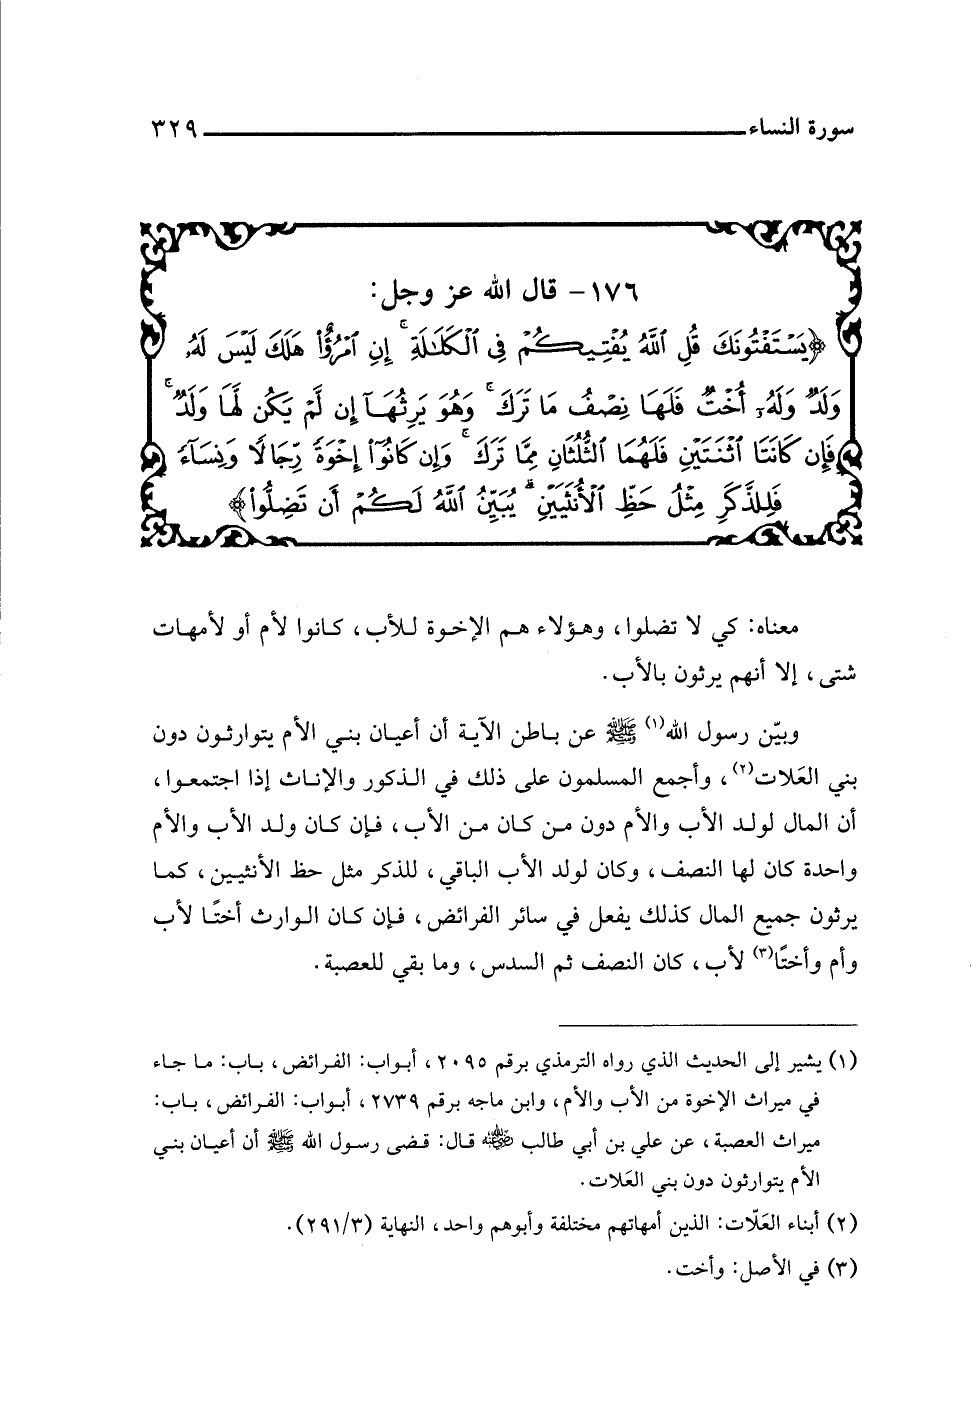 سورة النساء ٣٢٩
١٧٦- قال الله عز وجل:
﴿يَسْتَفْتُونَكَ قُلِ ٱللَّهُ يُفْتِيكُمْ فِى ٱلْكَلَٰلَةِ ۚ إِنِ ٱمْرُؤٌا۟ هَلَكَ لَيْسَ لَهُۥ
وَلَدٌ وَلَهُۥٓ أُخْتٌ فَلَهَا نِصْفُ مَا تَرَكَ ۚ وَهُوَ يَرِثُهَآ إِن لَّمْ يَكُن لَّهَا وَلَدٌ ۚ
فَإِن كَانَتَا ٱثْنَتَيْنِ فَلَهُمَا ٱلثُّلُثَانِ مِمَّا تَرَكَ ۚ وَإِن كَانُوٓا۟ إِخْوَةً رِّجَالًا وَنِسَآءً
فَلِلذَّكَرِ مِثْلُ حَظِّ ٱلْأُنثَيَيْنِ ۗ يُبَيِّنُ ٱللَّهُ لَكُمْ أَن تَضِلُّوا۟﴾
معناه: كي لا تضلوا، وهؤلاء هم الإخوة للأب، كانوا لأم أو لأمهات
شتى، إلا أنهم يرثون بالأب.
وبيّن رسول الله(١) ﷺ عن باطن الآية أن أعيان بني الأم يتوارثون دون
بني العَلات(٢)، وأجمع المسلمون على ذلك في الذكور والإناث إذا اجتمعوا،
أن المال لولد الأب والأم دون من كان من الأب، فإن كان ولد الأب والأم
واحدة كان لها النصف، وكان لولد الأب الباقي، للذكر مثل حظ الأنثيين، كما
يرثون جميع المال كذلك يفعل في سائر الفرائض، فإن كان الوارث أختًا لأب
وأم وأختًا(٣) لأب، كان النصف ثم السدس، وما بقي للعصبة.
(١) يشير إلى الحديث الذي رواه الترمذي برقم ٢٠٩٥، أبواب: الفرائض، باب: ما جاء
في ميراث الإخوة من الأب والأم، وابن ماجه برقم ٢٧٣٩، أبواب: الفرائض، باب:
ميراث العصبة، عن علي بن أبي طالب رضي الله عنه قال: قضى رسول الله ﷺ أن أعيان بني
الأم يتوارثون دون بني العَلات.
(٢) أبناء العَلّات: الذين أمهاتهم مختلفة وأبوهم واحد، النهاية (٣/ ٢٩١).
(٣) في الأصل: وأخت.